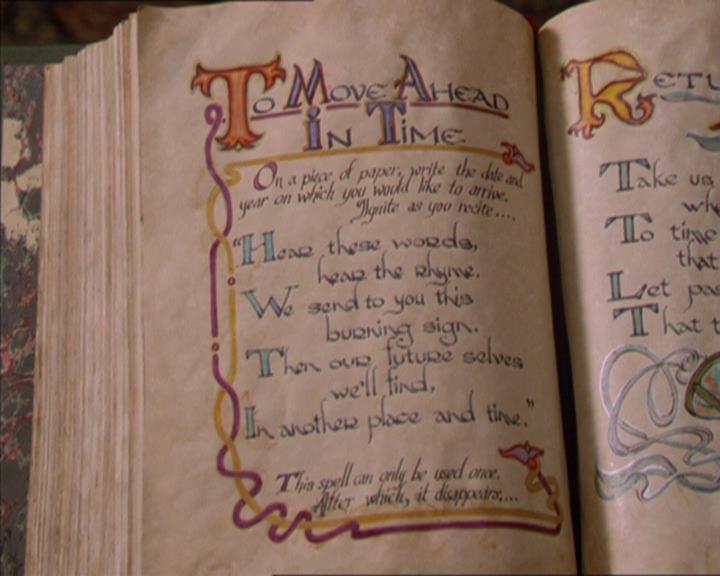 To Move Ahead
In Time
On a piece of paper, write the date and
year on which you would like to arrive.
Ignite as you recite....
"Hear these words,
hear the rhyme.
We send to you this
burning sign.
Then our future selves
we'll find,
In another place and time."
This spell can only be used once.
After which, it disappears....
Take us
To time
that
Let
That